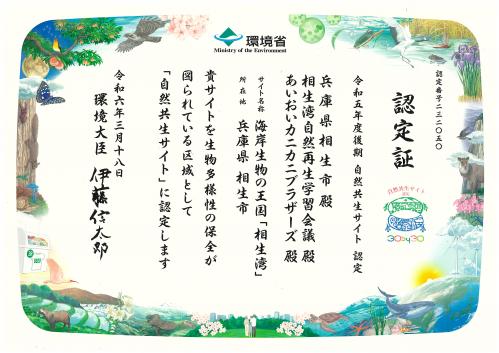 環境省
Ministry of the Environment
認定番号二三二〇五〇
認定証
自然共生サイト
認定
30by30
令和五年度後期 自然共生サイト 認定
兵庫県相生市 殿
相生湾自然再生学習会議 殿
あいおいカニカニブラザーズ 殿
サイト名称 海岸生物の王国「相生湾」
所在地 兵庫県 相生市
貴サイトを生物多様性の保全が
図られている区域として
「自然共生サイト」に認定します
令和六年三月十八日
環境大臣 伊藤信太郎